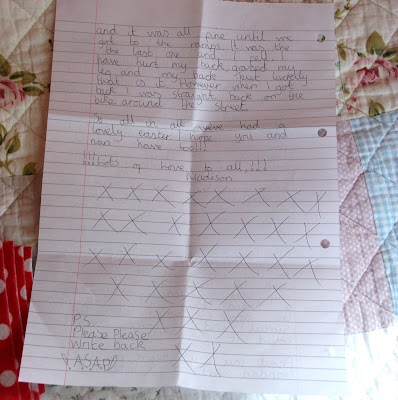 and it was all fine until we
got to the ramps. It was the
the last one and I fall. I
have hurt my back, grazed my
leg and my back but luckily
that is it. However when I got
back I was straight back on the
bike around the street.
So all in all we've had a
lovely easter hope you and
nan have too!!!
!!!Lots of love to all,!!!
Madison
X X X X X X X X
X X X X X X X
X X X X X X X X
X X X X X X
X X X
X X
P.S.
Please Please
write back
ASAP